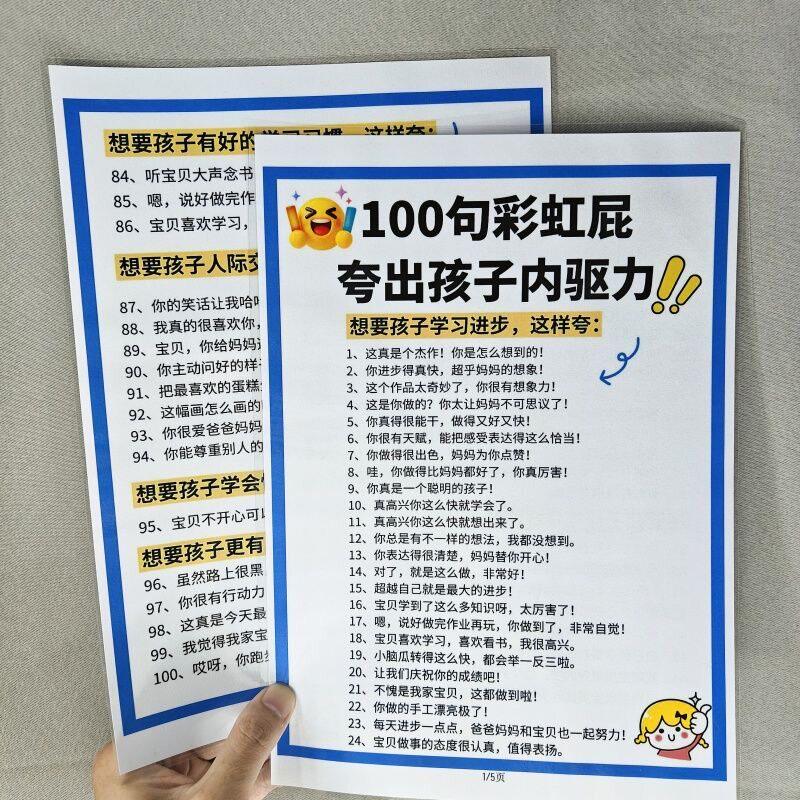 想要孩子有好的学习习惯，这样夸：
84、听宝贝大声念书
85、嗯，说好做完作
86、宝贝喜欢学习，
想要孩子人际交
87、你的笑话让我哈哈
88、我真的很喜欢你，
89、宝贝，你给妈妈
90、你主动问好的样子
91、把最喜欢的蛋糕
92、这幅画怎么画的
93、你很爱爸爸妈妈
94、你能尊重别人的
想要孩子学会
95、宝贝不开心可以
想要孩子更有
96、虽然路上很黑
97、你很有行动力
98、这真是今天最
99、我觉得我家宝
100、哎呀，你跑
100句彩虹屁
夸出孩子内驱力!!
想要孩子学习进步，这样夸：
1、这真是个杰作！你是怎么想到的！
2、你进步得真快，超乎妈妈的想象！
3、这个作品太奇妙了，你很有想象力！
4、这是你做的？你太让妈妈不可思议了！
5、你真得很能干，做得又好又快！
6、你很有天赋，能把感受表达得这么恰当！
7、你做得很出色，妈妈为你点赞！
8、哇，你做得比妈妈都好了，你真厉害！
9、你真是一个聪明的孩子！
10、真高兴你这么快就学会了。
11、真高兴你这么快就想出来了。
12、你总是有不一样的想法，我都没想到。
13、你表达得很清楚，妈妈替你开心！
14、对了，就是这么做，非常好！
15、超越自己就是最大的进步！
16、宝贝学到了这么多知识呀，太厉害了！
17、嗯，说好做完作业再玩，你做到了，非常自觉！
18、宝贝喜欢学习，喜欢看书，我很高兴。
19、小脑瓜转得这么快，都会举一反三啦。
20、让我们庆祝你的成绩吧！
21、不愧是我家宝贝，这都做到啦！
22、你做的手工漂亮极了！
23、每天进步一点点，爸爸妈妈和宝贝也一起努力！
24、宝贝做事的态度很认真，值得表扬。
1/5页